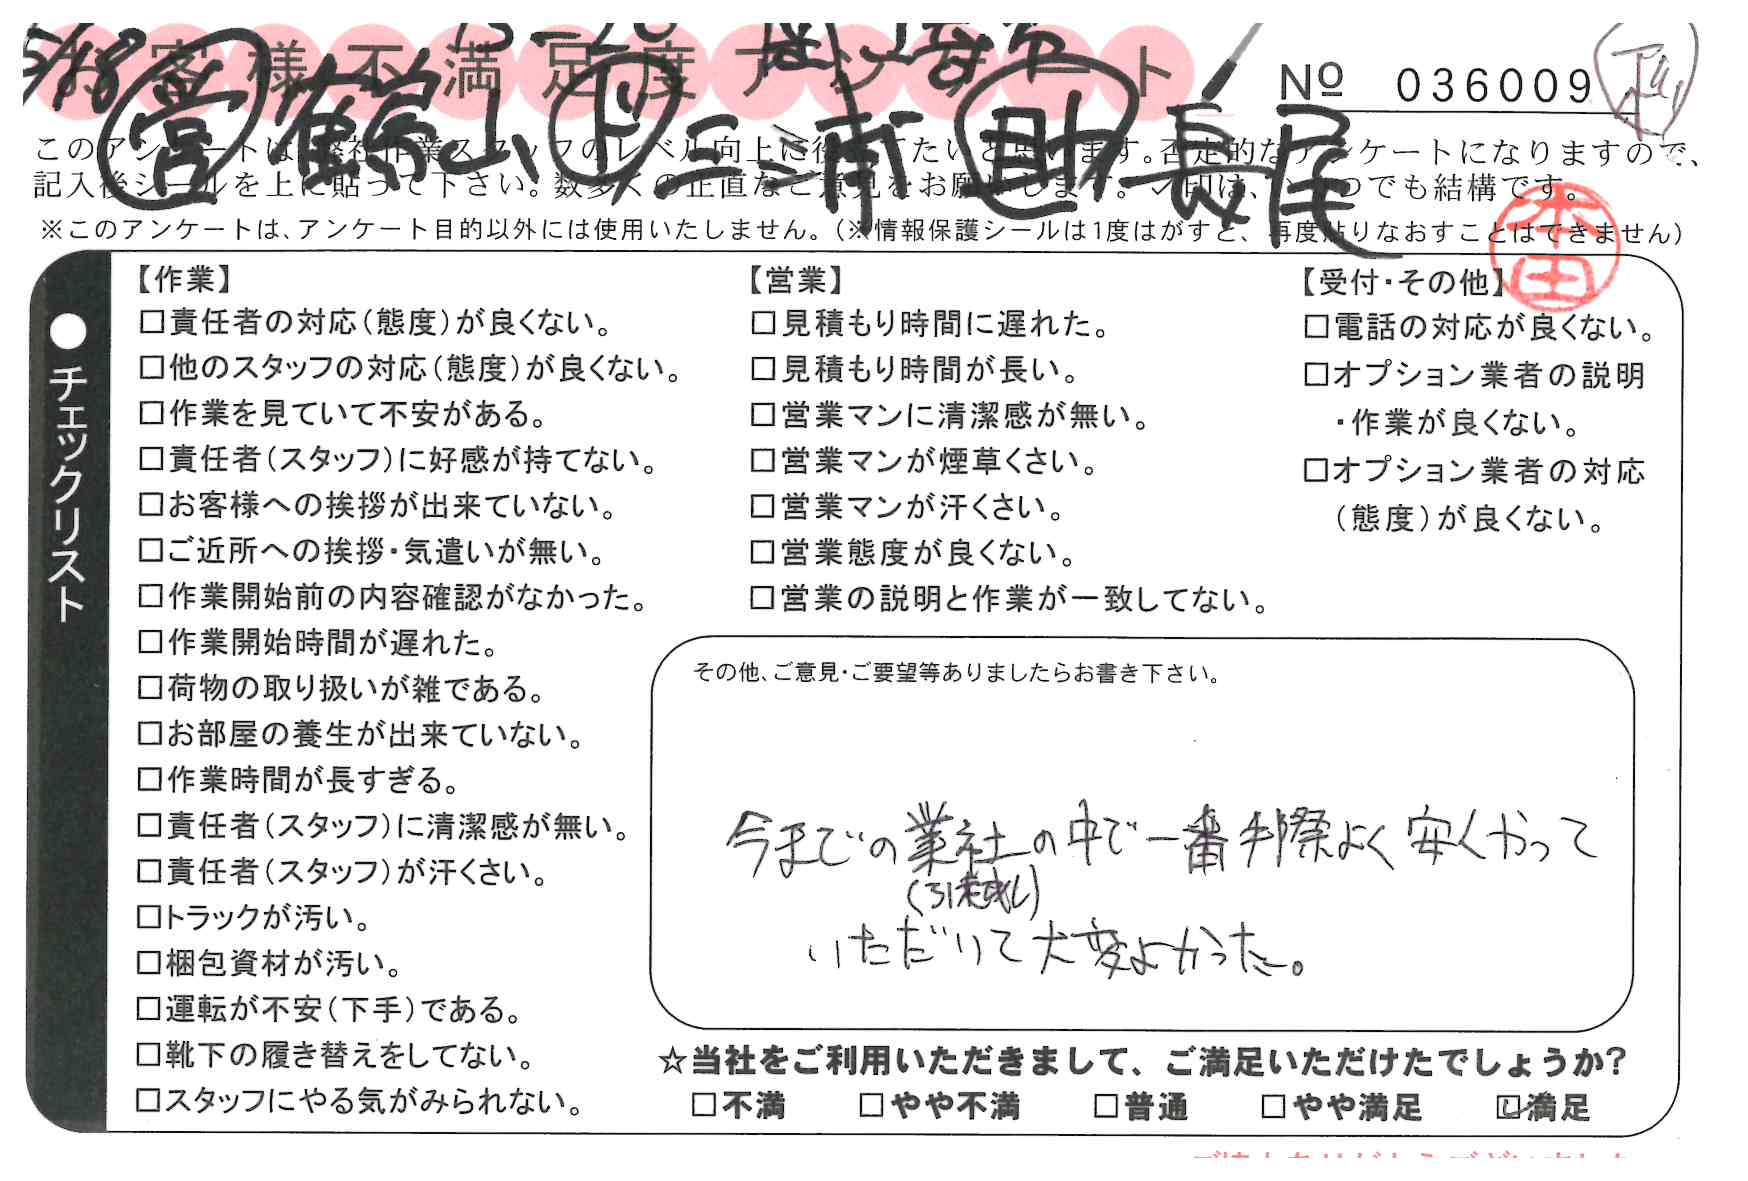 お客様不満足度アンケート
5/18
№ 036009
営 鶴山 ド 三浦 助 長尾
このアンケートは、弊社作業スタッフのレベル向上に役立てたいと思います。否定的なアンケートになりますので、
記入後シールを上に貼って下さい。数多くの正直なご意見をお願いします。レ印は、いくつでも結構です。
※このアンケートは、アンケート目的以外には使用いたしません。(※情報保護シールは1度はがすと、再度貼りなおすことはできません)
本田
●チェックリスト
【作業】
□責任者の対応(態度)が良くない。
□他のスタッフの対応(態度)が良くない。
□作業を見ていて不安がある。
□責任者(スタッフ)に好感が持てない。
□お客様への挨拶が出来ていない。
□ご近所への挨拶・気遣いが無い。
□作業開始前の内容確認がなかった。
□作業開始時間が遅れた。
□荷物の取り扱いが雑である。
□お部屋の養生が出来ていない。
□作業時間が長すぎる。
□責任者(スタッフ)に清潔感が無い。
□責任者(スタッフ)が汗くさい。
□トラックが汚い。
□梱包資材が汚い。
□運転が不安(下手)である。
□靴下の履き替えをしてない。
□スタッフにやる気がみられない。
【営業】
□見積もり時間に遅れた。
□見積もり時間が長い。
□営業マンに清潔感が無い。
□営業マンが煙草くさい。
□営業マンが汗くさい。
□営業態度が良くない。
□営業の説明と作業が一致してない。
【受付・その他】
□電話の対応が良くない。
□オプション業者の説明
・作業が良くない。
□オプション業者の対応
(態度)が良くない。
その他、ご意見・ご要望等ありましたらお書き下さい。
今までの業社の中で一番手際よく安くやって
(引越し)
いただいて大変よかった。
☆当社をご利用いただきまして、ご満足いただけたでしょうか?
□不満 □やや不満 □普通 □やや満足 ☑満足